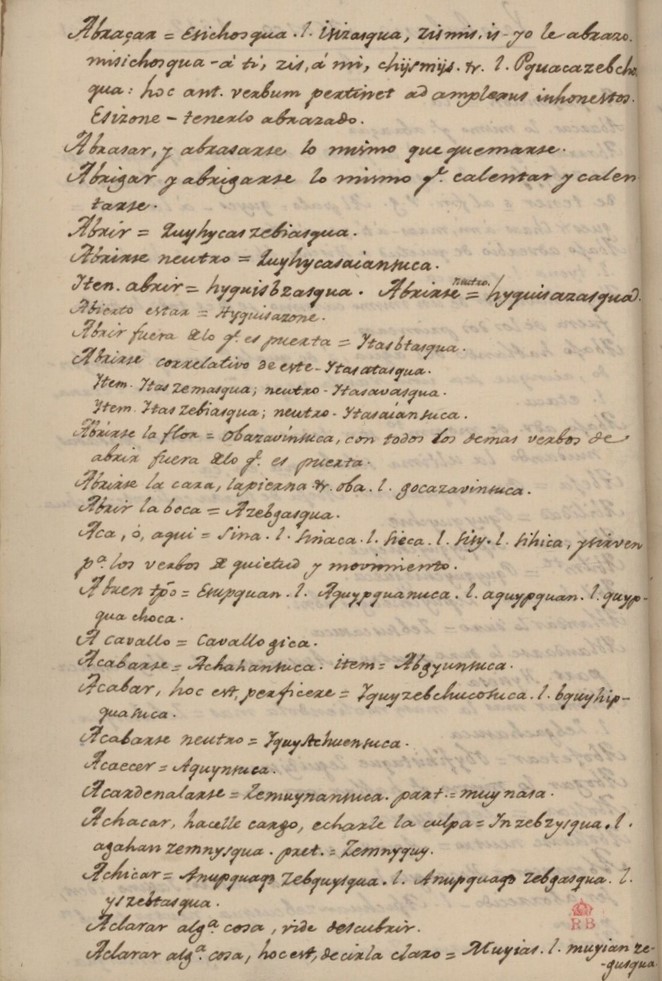 Abraçar = Esichosqua . l. isizasqua, zismis, is - yo le abrazo.
misichosqua - á ti, zis, á mi, chijsmijs. &. l. Pquacazebcho
qua: hoc ant. verbum pertinet ad amplexus inhonestos.
Esizone - tenerlo abrazado.
Abrasar, y abrasarse lo mismo que quemarse.
Abrigar y abrigarse lo mismo q.^e calentar y calen
tarse.
Abrir = Quyhycas zebiasqua.
Abrirse neutro = Quyhycasaiansuca.
Iten. abrir = hyquisbzasqua. Abrirse neutro. = hyquisazasqua.
Abierto estar = Hyquisazone.
Abrir fuera de lo q.^e es puerta = Ytasbtasqua.
Abrirse correlativo de este - Ytasatasqua.
Item. Ytas zemasqua; neutro - Ytasavasqua.
Item. Ytas zebiasqua; neutro - Ytasaiansuca.
Abrirse la flor = obazavinsuca, con todos los demas verbos de
abrir fuera de lo q.^e es puerta.
Abrirse la cara, la pierna &. oba. l. gocazavinsuca.
Abrir la boca = Azebgasqua.
Aca, ó, aqui = Sina. l. sinaca. l. sieca. l. sisy. l. sihica, y sirven
p.^a los verbos de quietud y movimiento.
A buen tpō = Esupquan. l. Aquypquanuca. l. aquypquan. l. quyp-
qua choca.
A cavallo = Cavallo gica.
Acabarse = Achahansuca. item = Abgyunsuca.
Acabar, hoc est, perficere = Yquyzebchucosuca. l. bquyhip-
quasuca.
Acabarse neutro = Yquyachuensuca.
Acaecer = Aquynsuca.
Acardenalarse = Zemuynansuca. part. = muynasa.
Achacar, hacelle cargo, echarle la culpa = Inzebzysqua. l.
agahan zemnysqua. pret. = Zemnyquy.
Achicar = Anupquaqɜ zebquysqua. l. Anupquaqɜ zebgasqua. l.
ys zebtasqua.
Aclarar alg.^a cosa, vide descubrir.
RB
Aclarar alg.^a cosa, hoc est, decirla claro = Muyias. l. muyian ze-
-gusqua